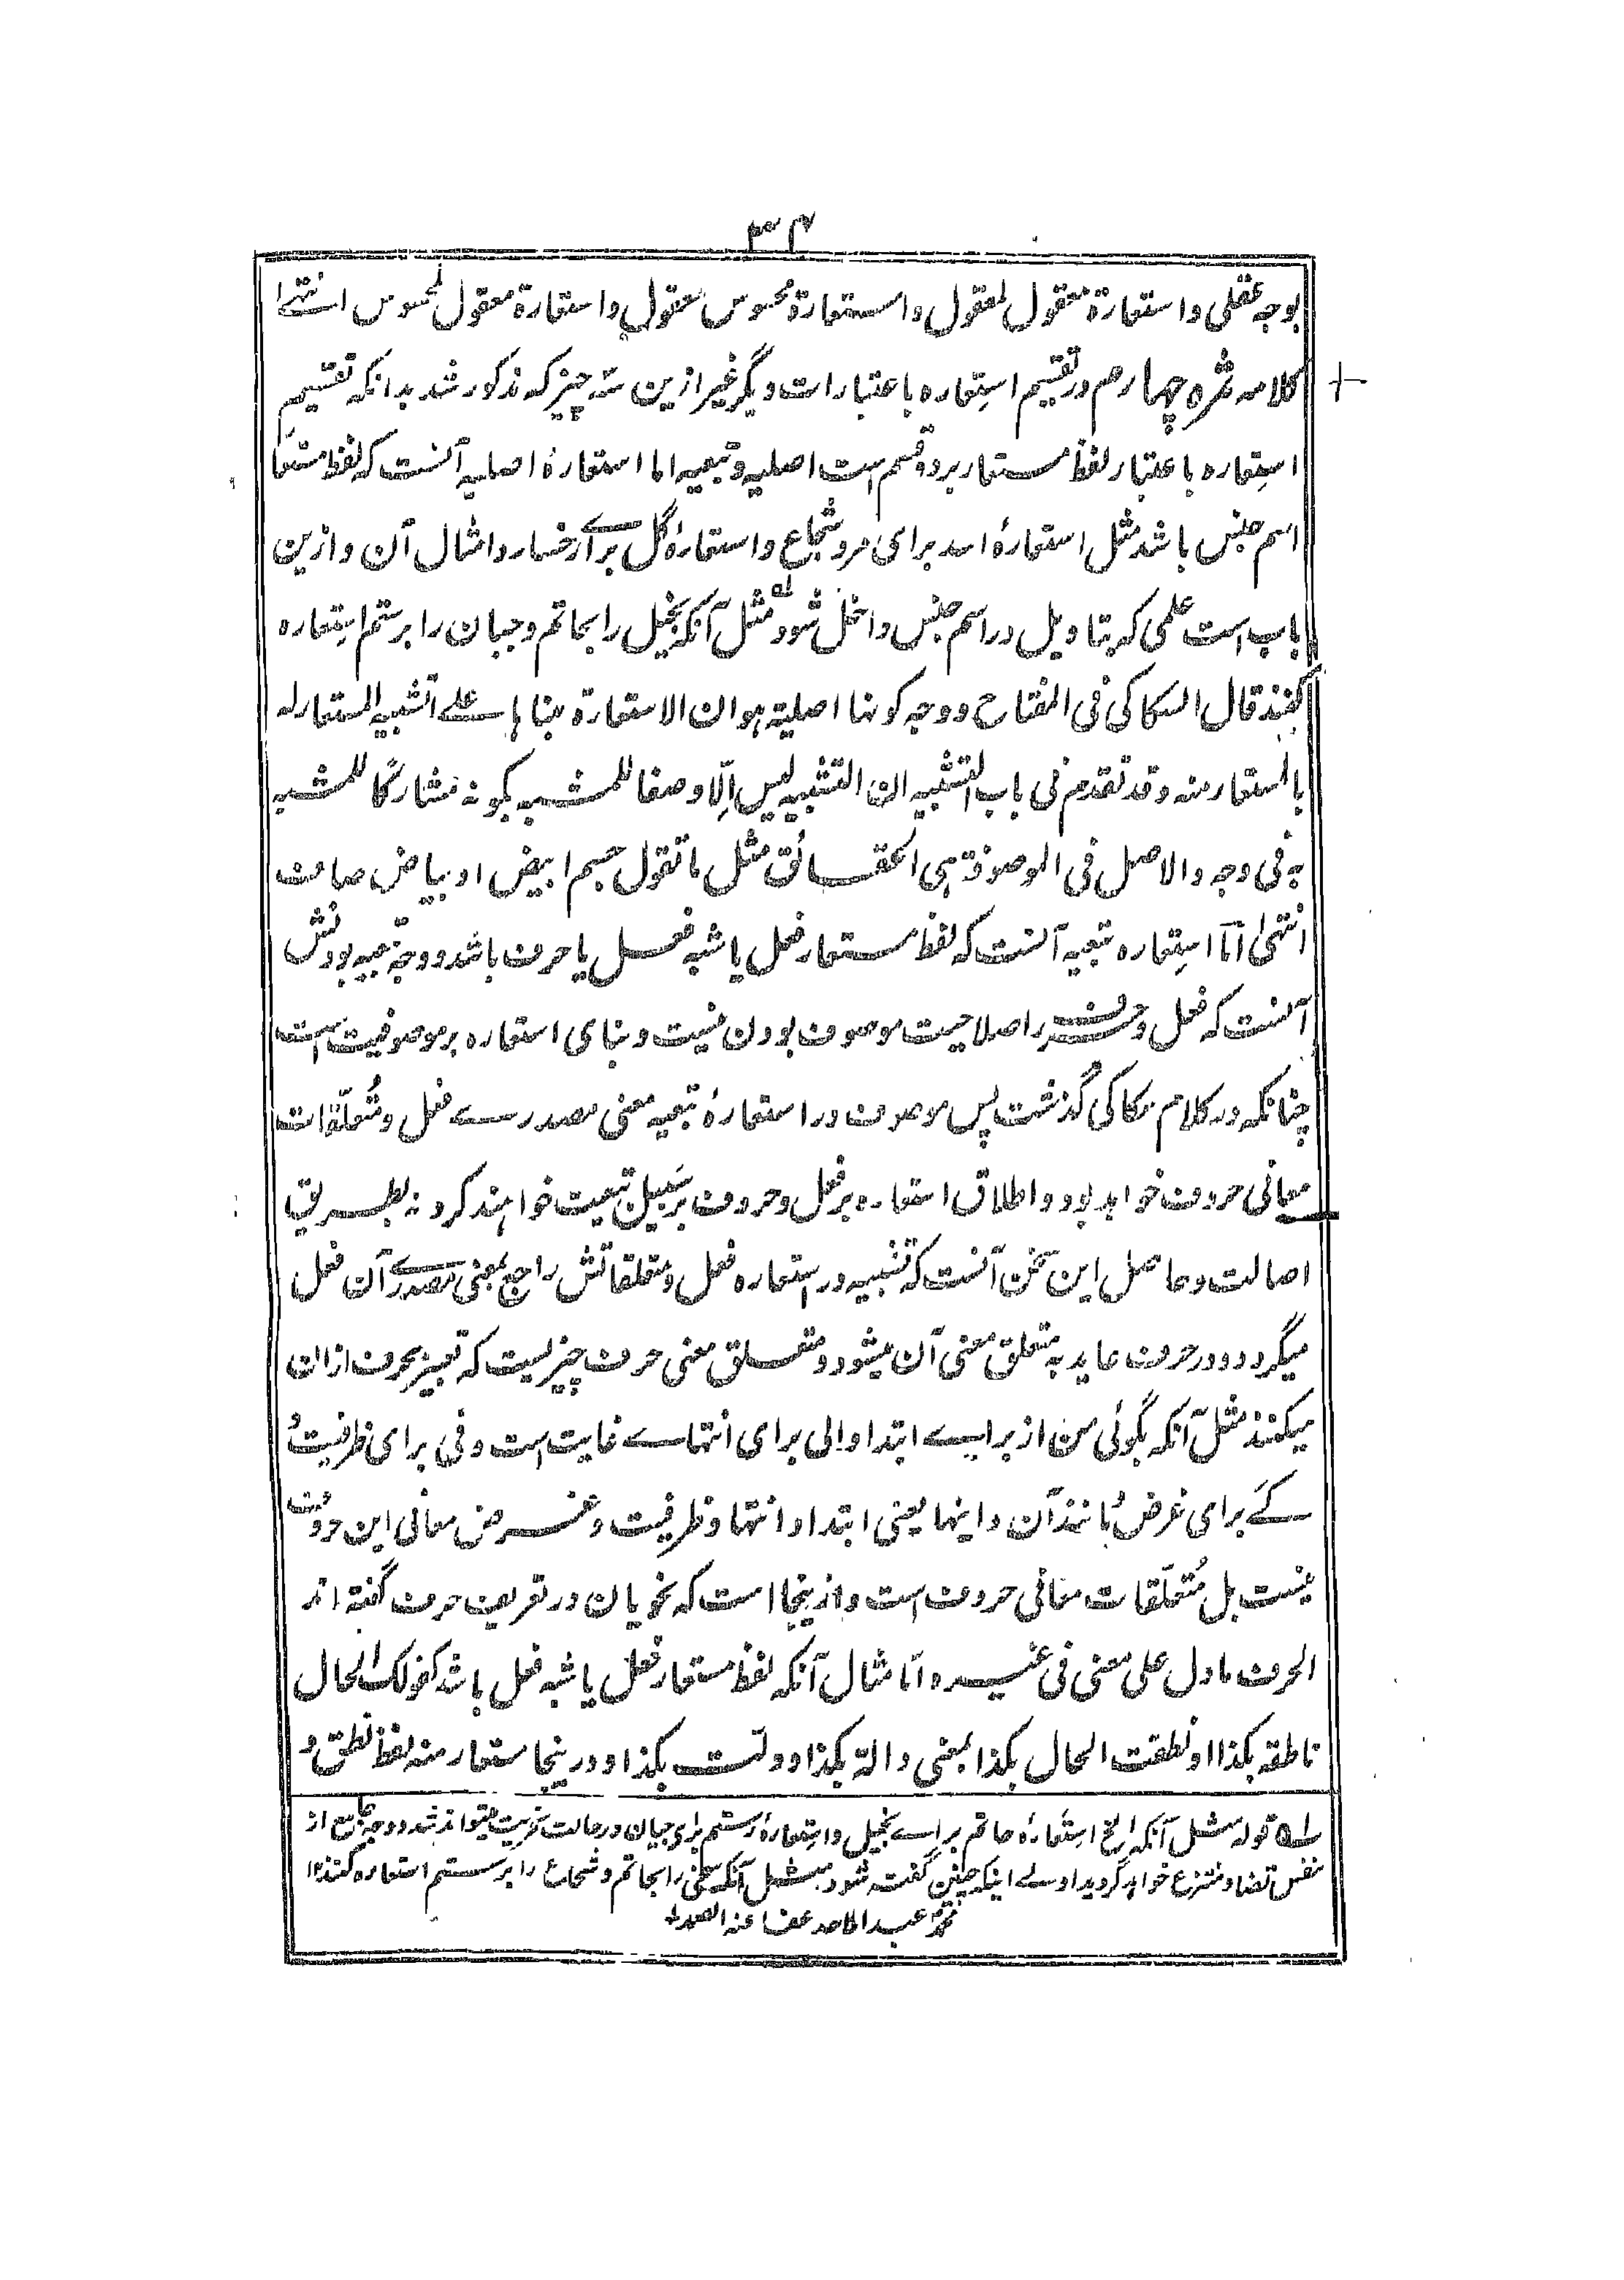 ۳۴
بوجه عقلی و استعارة معقول لمعقول و استعارة محسوس لمعقول و استعارة معقول لمحسوس انتهى
کلامه ثمره چهارم در تقسیم استعاره باعتبارات دیگر غیر ازین سه چیز که مذکور شد بدانکه تقسیم
استعاره باعتبار لفظ مستعار بر دو قسم است اصلیه و تبعیه اما استعارهٔ اصلیه آنست که لفظ مستعا
اسم جنس باشد مثل استعارهٔ اسد برای مرد شجاع و استعارهٔ گل برای رخسار و امثال آن و ازین
باب است علمی که بتاویل در اسم جنس داخل شود له مثل آنکه بخیل را بحاتم و جبان را برستم استعاره
کنند قال السکاکی فی المفتاح و وجه کونها اصلیة هو ان الاستعارة مبناها علی تشبیه المستعار له
بالمستعار منه و قد تقدم فی باب التشبیه ان التشبیه لیس الّا وصفا للمشبه بکونه مشارکًا للمشبه
به فی وجه و الاصل فی الموصوفة هی الحقائق مثل ما تقول جسم ابیض او بیاض صاف
انتهىٰ امّا استعاره تبعیه آنست که لفظ مستعار فعل یا شبه فعل یا حرف باشد و وجه تبعیه بودنش
آنست که فعل و حرف را صلاحیت موصوف بودن نیست و بنای استعاره بر موصوفیت است
چنانکه در کلام سکاکی گذشت پس موصوف در استعارهٔ تبعیه معنی مصدرے فعل و مُتعلّقات
معانی حروف خواهد بود و اطلاق استعاره بر فعل و حروف بر سبیل تبعیت خواهند کرد نه بطریق
اصالت و حاصل این سخن آنست که تشبیه در استعاره فعل و متعلقاتش راجع بمعنی مصدرے آن فعل
میگردد و در حروف عاید به متعلق معنی آن میشود و متعلق معنی حرف چیزیست که تعبیر بحرف ازان
میکنند مثل آنکه بگوئی من از براے ابتدا و الی برای انتهاے غایت است و فی برای ظرفیت و
کے برای غرض و مانند آن و اینها یعنی ابتدا و انتها و ظرفیت و غرض معانی این حروف
نیست بل مُتعلّقات معانی حروف است و ازینجا است که نحویان در تعریف حرف گفته اند
الحرف ما دل علی معنی فی غیره امّا مثال آنکه لفظ مستعار فعل یا شبه فعل باشد کقولک الحال
ناطقه بکذا او نطقت الحال بکذا بمعنی دالة بکذا و دلت بکذا و درینجا مستعار منه لفظ نطق و
له قوله مثل آنکه الخ استعارهٔ حاتم براے بخیل و استعارهٔ رستم برای جبان در حالت قرینیت میتواند شد و وجه جامع از
نفس تضاد منتزع خواهد گردید اولے اینکه چنین گفته شود مثل آنکه سخی را بحاتم و شجاع را برستم استعاره کنند ۱۲
محمد عبدالاحد عفا عنه الصمد